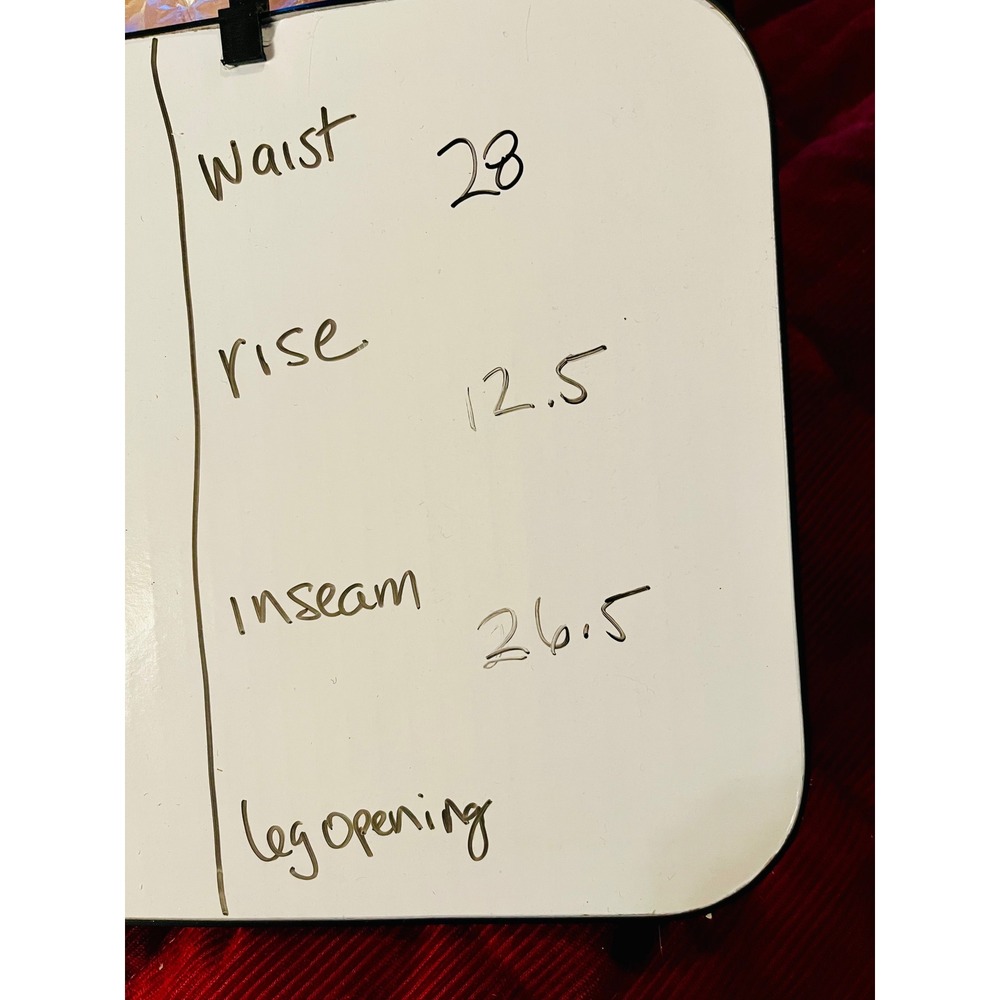 waist 28
rise 12.5
inseam 26.5
leg opening